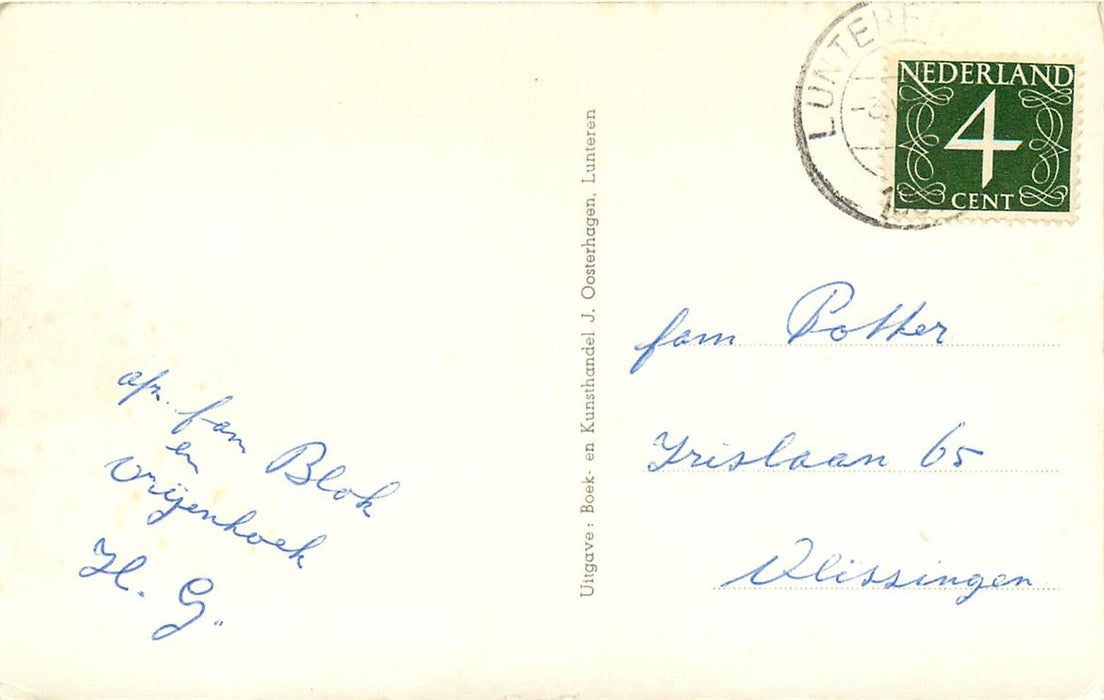 LUNTEREN
NEDERLAND
4
CENT
Uitgave: Boek- en Kunsthandel J. Oosterhagen, Lunteren
fam Potter
Irislaan 65
Vlissingen
afz. fam Blok
en
Vrijenhoek
H. G.